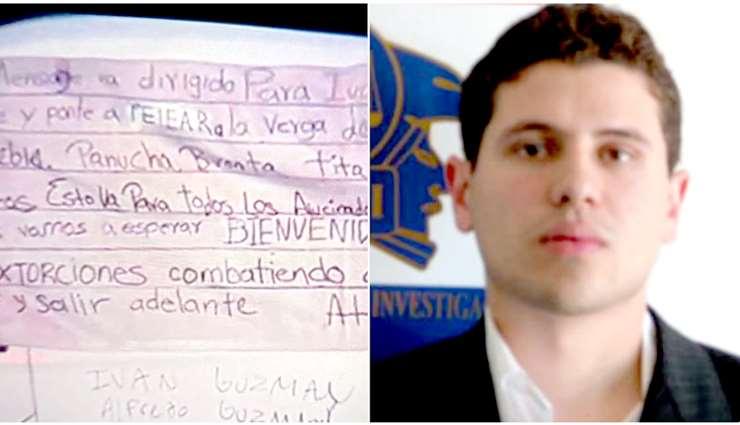 dirigido Para
y ponte a PELEAR a la verga
Panucha Brenta Tita
Esto va Para todos Los
vamos a esperar BIENVENID
XTORCIONES combatiendo
y salir adelante At
IVAN GUZMAN
Alfredo GUZMAN
INVESTIGA